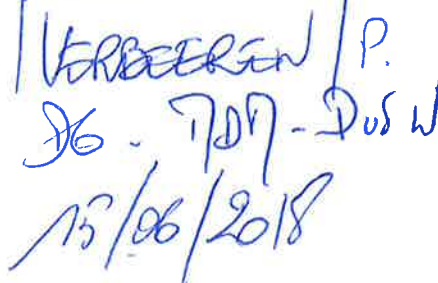 VERBEEREN P.
DG - MDM - DUS W
15/06/2018